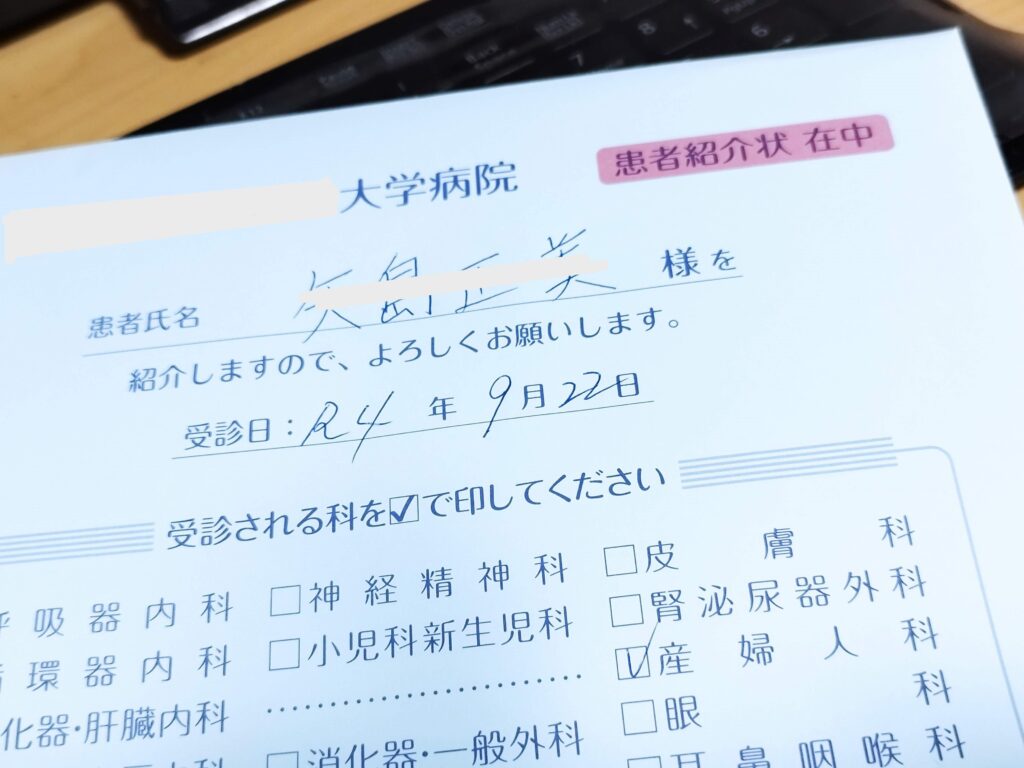 大学病院
患者紹介状 在中
患者氏名 様を
紹介しますので、よろしくお願いします。
受診日：R4年9月22日
受診される科を☑で印してください
呼吸器内科
環器内科
化器・肝臓内科
□神経精神科
□小児科新生児科
□消化器・一般外科
□皮膚科
□腎泌尿器外科
☑産婦人科
□眼科
□耳鼻咽喉科